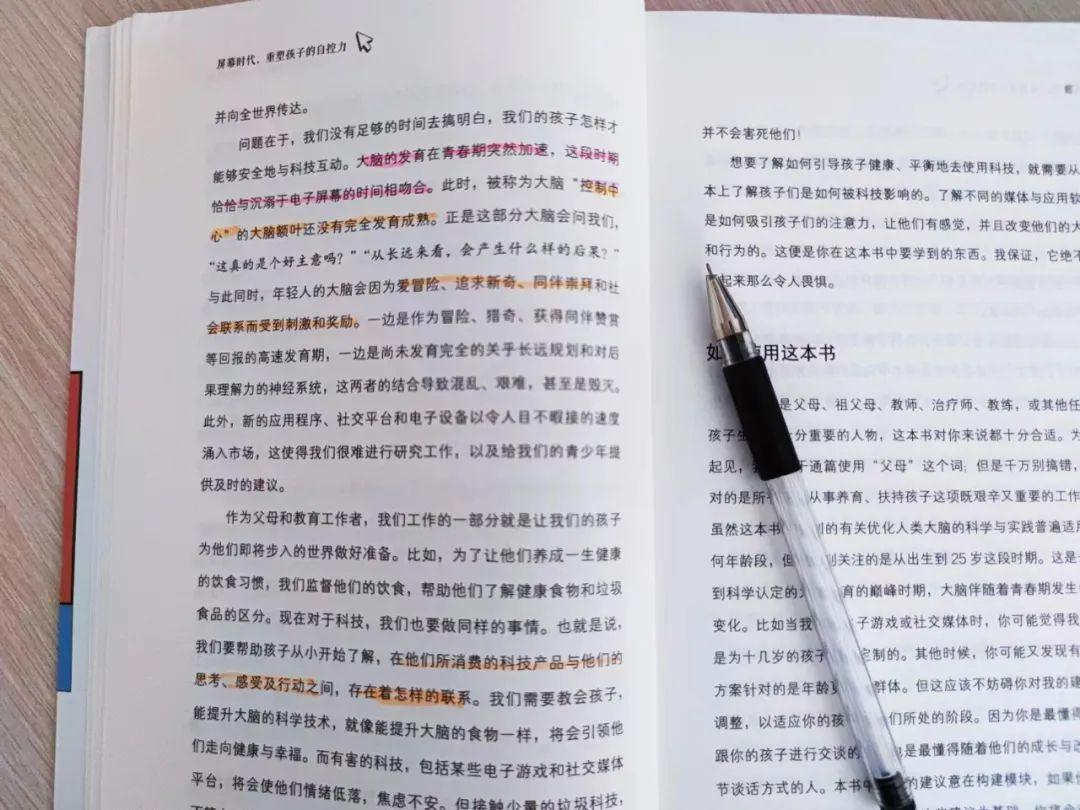 屏幕时代,重塑孩子的自控力
并向全世界传达。
问题在于,我们没有足够的时间去搞明白,我们的孩子怎样才
能够安全地与科技互动。大脑的发育在青春期突然加速,这段时期
恰恰与沉溺于电子屏幕的时间相吻合。此时,被称为大脑“控制中
心”的大脑额叶还没有完全发育成熟。正是这部分大脑会问我们,
“这真的是个好主意吗?”“从长远来看,会产生什么样的后果?”
与此同时,年轻人的大脑会因为爱冒险、追求新奇、同伴崇拜和社
会联系而受到刺激和奖励。一边是作为冒险、猎奇、获得同伴赞赏
等回报的高速发育期,一边是尚未发育完全的关乎长远规划和对后
果理解力的神经系统,这两者的结合导致混乱、艰难,甚至是毁灭。
此外,新的应用程序、社交平台和电子设备以令人目不暇接的速度
涌入市场,这使得我们很难进行研究工作,以及给我们的青少年提
供及时的建议。
作为父母和教育工作者,我们工作的一部分就是让我们的孩子
为他们即将步入的世界做好准备。比如,为了让他们养成一生健康
的饮食习惯,我们监督他们的饮食,帮助他们了解健康食物和垃圾
食品的区分。现在对于科技,我们也要做同样的事情。也就是说,
我们要帮助孩子从小开始了解,在他们所消费的科技产品与他们的
思考、感受及行动之间,存在着怎样的联系。我们需要教会孩子,
能提升大脑的科学技术,就像能提升大脑的食物一样,将会引领他
们走向健康与幸福。而有害的科技,包括某些电子游戏和社交媒体
平台,将会使他们情绪低落,焦虑不安。但接触少量的垃圾科技,
并不会害死他们!
想要了解如何引导孩子健康、平衡地去使用科技,就需要从
本上了解孩子们是如何被科技影响的。了解不同的媒体与应用软
是如何吸引孩子们的注意力,让他们有感觉,并且改变他们的大
和行为的。这便是你在这本书中要学到的东西。我保证,它绝不
起来那么令人畏惧。
如 用这本书
是父母、祖父母、教师、治疗师、教练,或其他任
孩子生 分重要的人物,这本书对你来说都十分合适。为
起见, 于通篇使用“父母”这个词;但是千万别搞错,
对的是所 从事养育、扶持孩子这项既艰辛又重要的工作
虽然这本书 到的有关优化人类大脑的科学与实践普遍适用
何年龄段,但 别关注的是从出生到25岁这段时期。这是
到科学认定的 育的巅峰时期,大脑伴随着青春期发生
变化。比如当我 子游戏或社交媒体时,你可能觉得我
是为十几岁的孩子 定制的。其他时候,你可能又发现有
方案针对的是年龄更 群体。但这应该不妨碍你对我的建
调整,以适应你的孩 们所处的阶段。因为你是最懂得
跟你的孩子进行交谈的 也是最懂得随着他们的成长与改
节谈话方式的人。本书中 的建议意在构建模块,如果